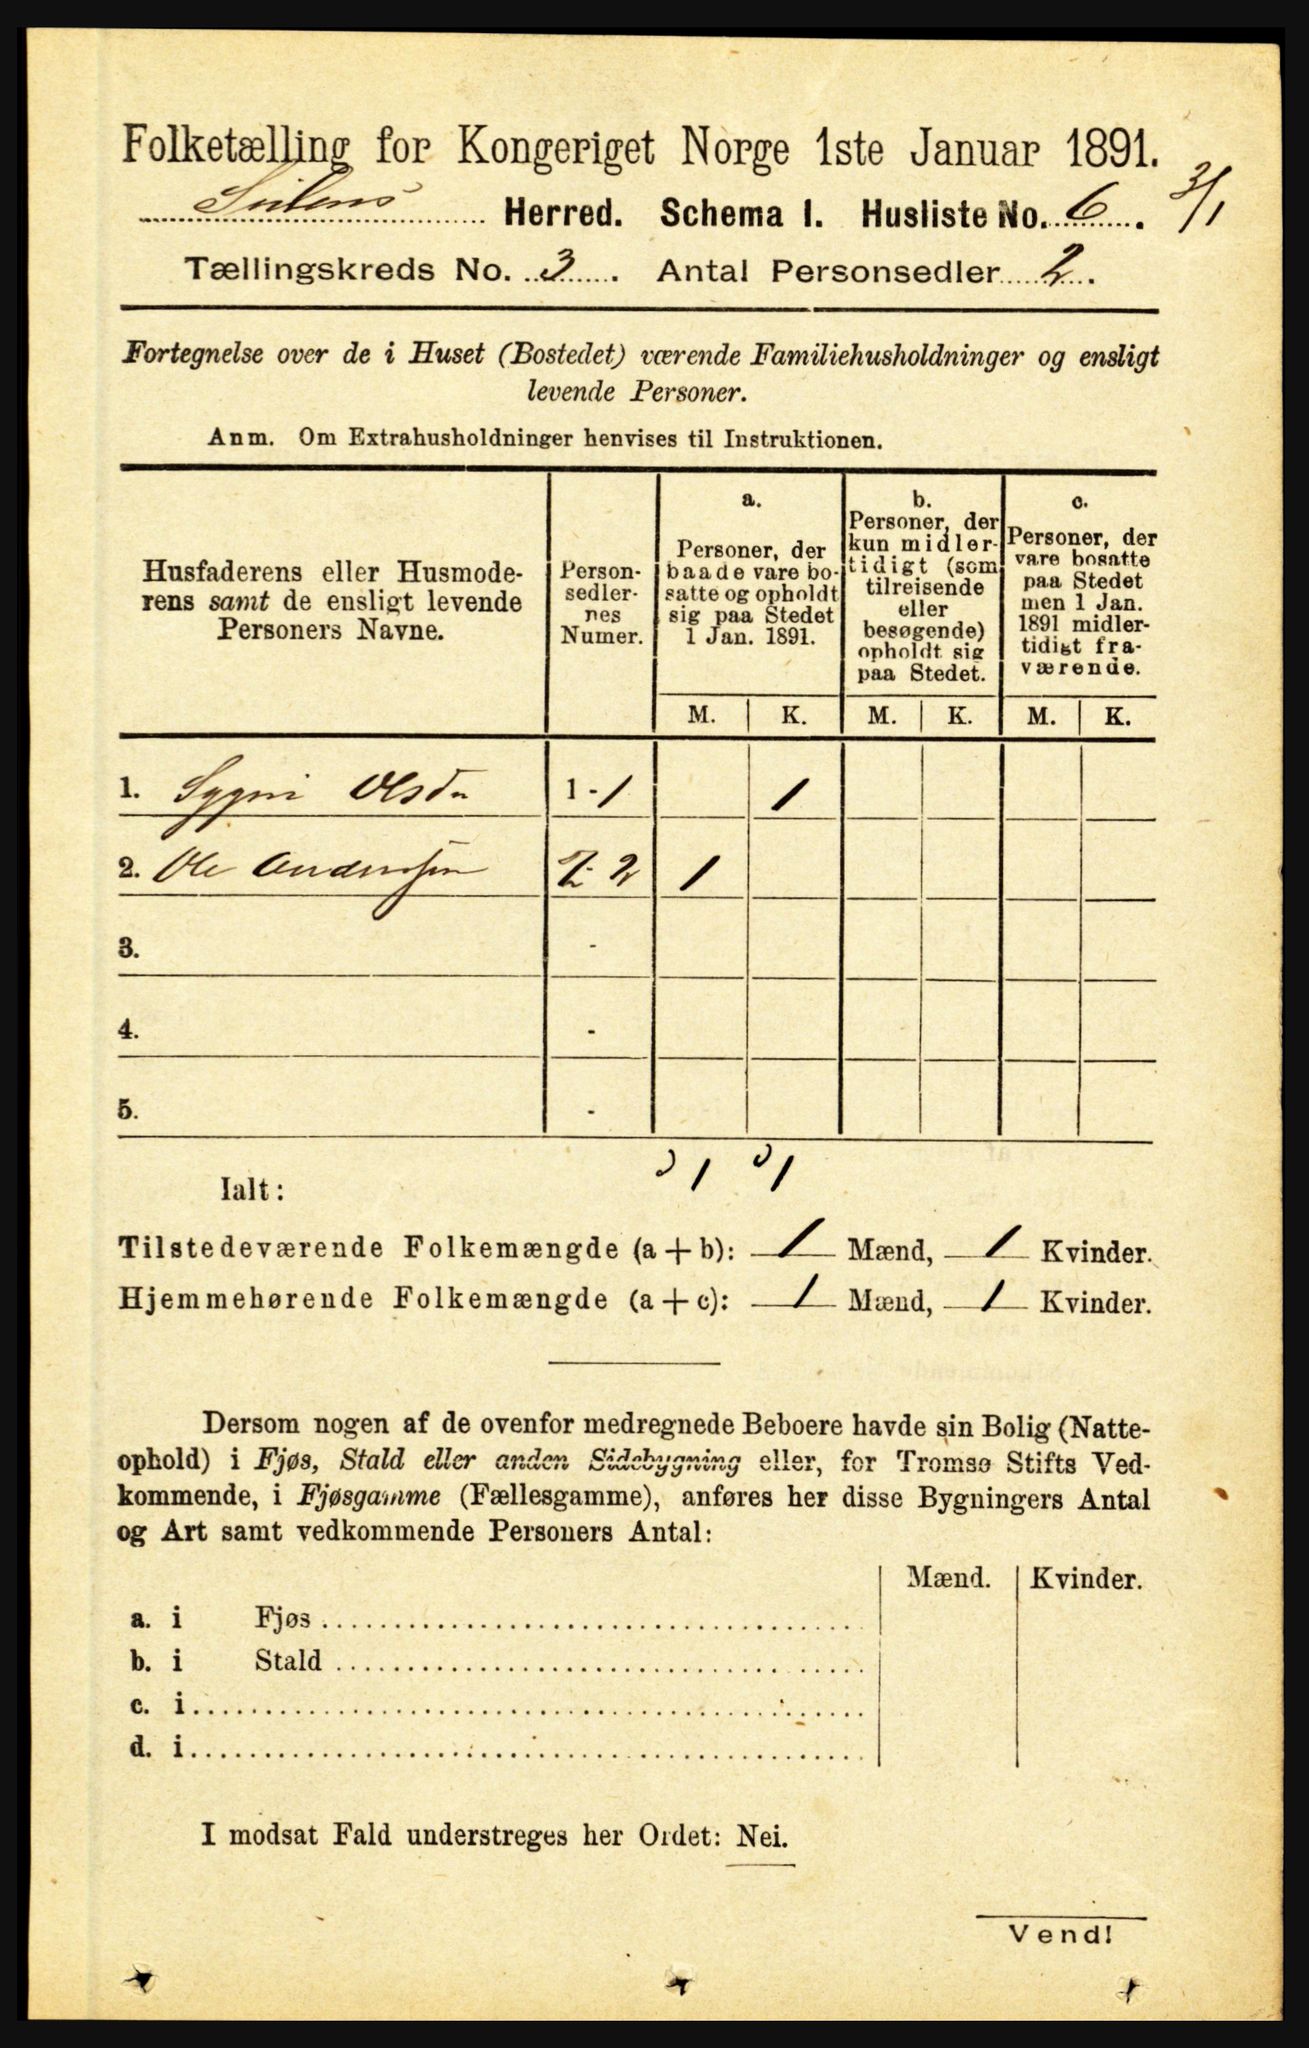 Folketælling for Kongeriget Norge 1ste Januar 1891.
Herred. Schema I. Husliste No. 6. 2/1
Tællingskreds No. 3. Antal Personsedler 2.
Fortegnelse over de i Huset (Bostedet) værende Familiehusholdninger og ensligt
levende Personer.
Anm. Om Extrahusholdninger henvises til Instruktionen.
Husfaderens eller Husmode-
rens samt de ensligt levende
Personers Navne.
Person-
sedler-
nes
Numer.
a.
Personer, der
baade vare bo-
satte og opholdt
sig paa Stedet
1 Jan. 1891.
b.
Personer, der
kun midler-
tidigt (som
tilreisende
eller
besøgende)
opholdt sig
paa Stedet.
c.
Personer, der
vare bosatte
paa Stedet
men 1 Jan.
1891 midler-
tidigt fra-
værende.
M. K. M. K. M. K.
1. Sygni Olsdr 1-1 1
2. Ole Anderssen 2-2 1
3. -
4. -
5. -
1 1
Ialt:
Tilstedeværende Folkemængde (a + b): 1 Mænd, 1 Kvinder.
Hjemmehørende Folkemængde (a + c): 1 Mænd, 1 Kvinder.
Dersom nogen af de ovenfor medregnede Beboere havde sin Bolig (Natte-
ophold) i Fjøs, Stald eller anden Sidebygning eller, for Tromsø Stifts Ved-
kommende, i Fjøsgamme (Fællesgamme), anføres her disse Bygningers Antal
og Art samt vedkommende Personers Antal:
Mænd. Kvinder.
a. i Fjøs
b. i Stald
c. i
d. i
I modsat Fald understreges her Ordet: Nei.
Vend!